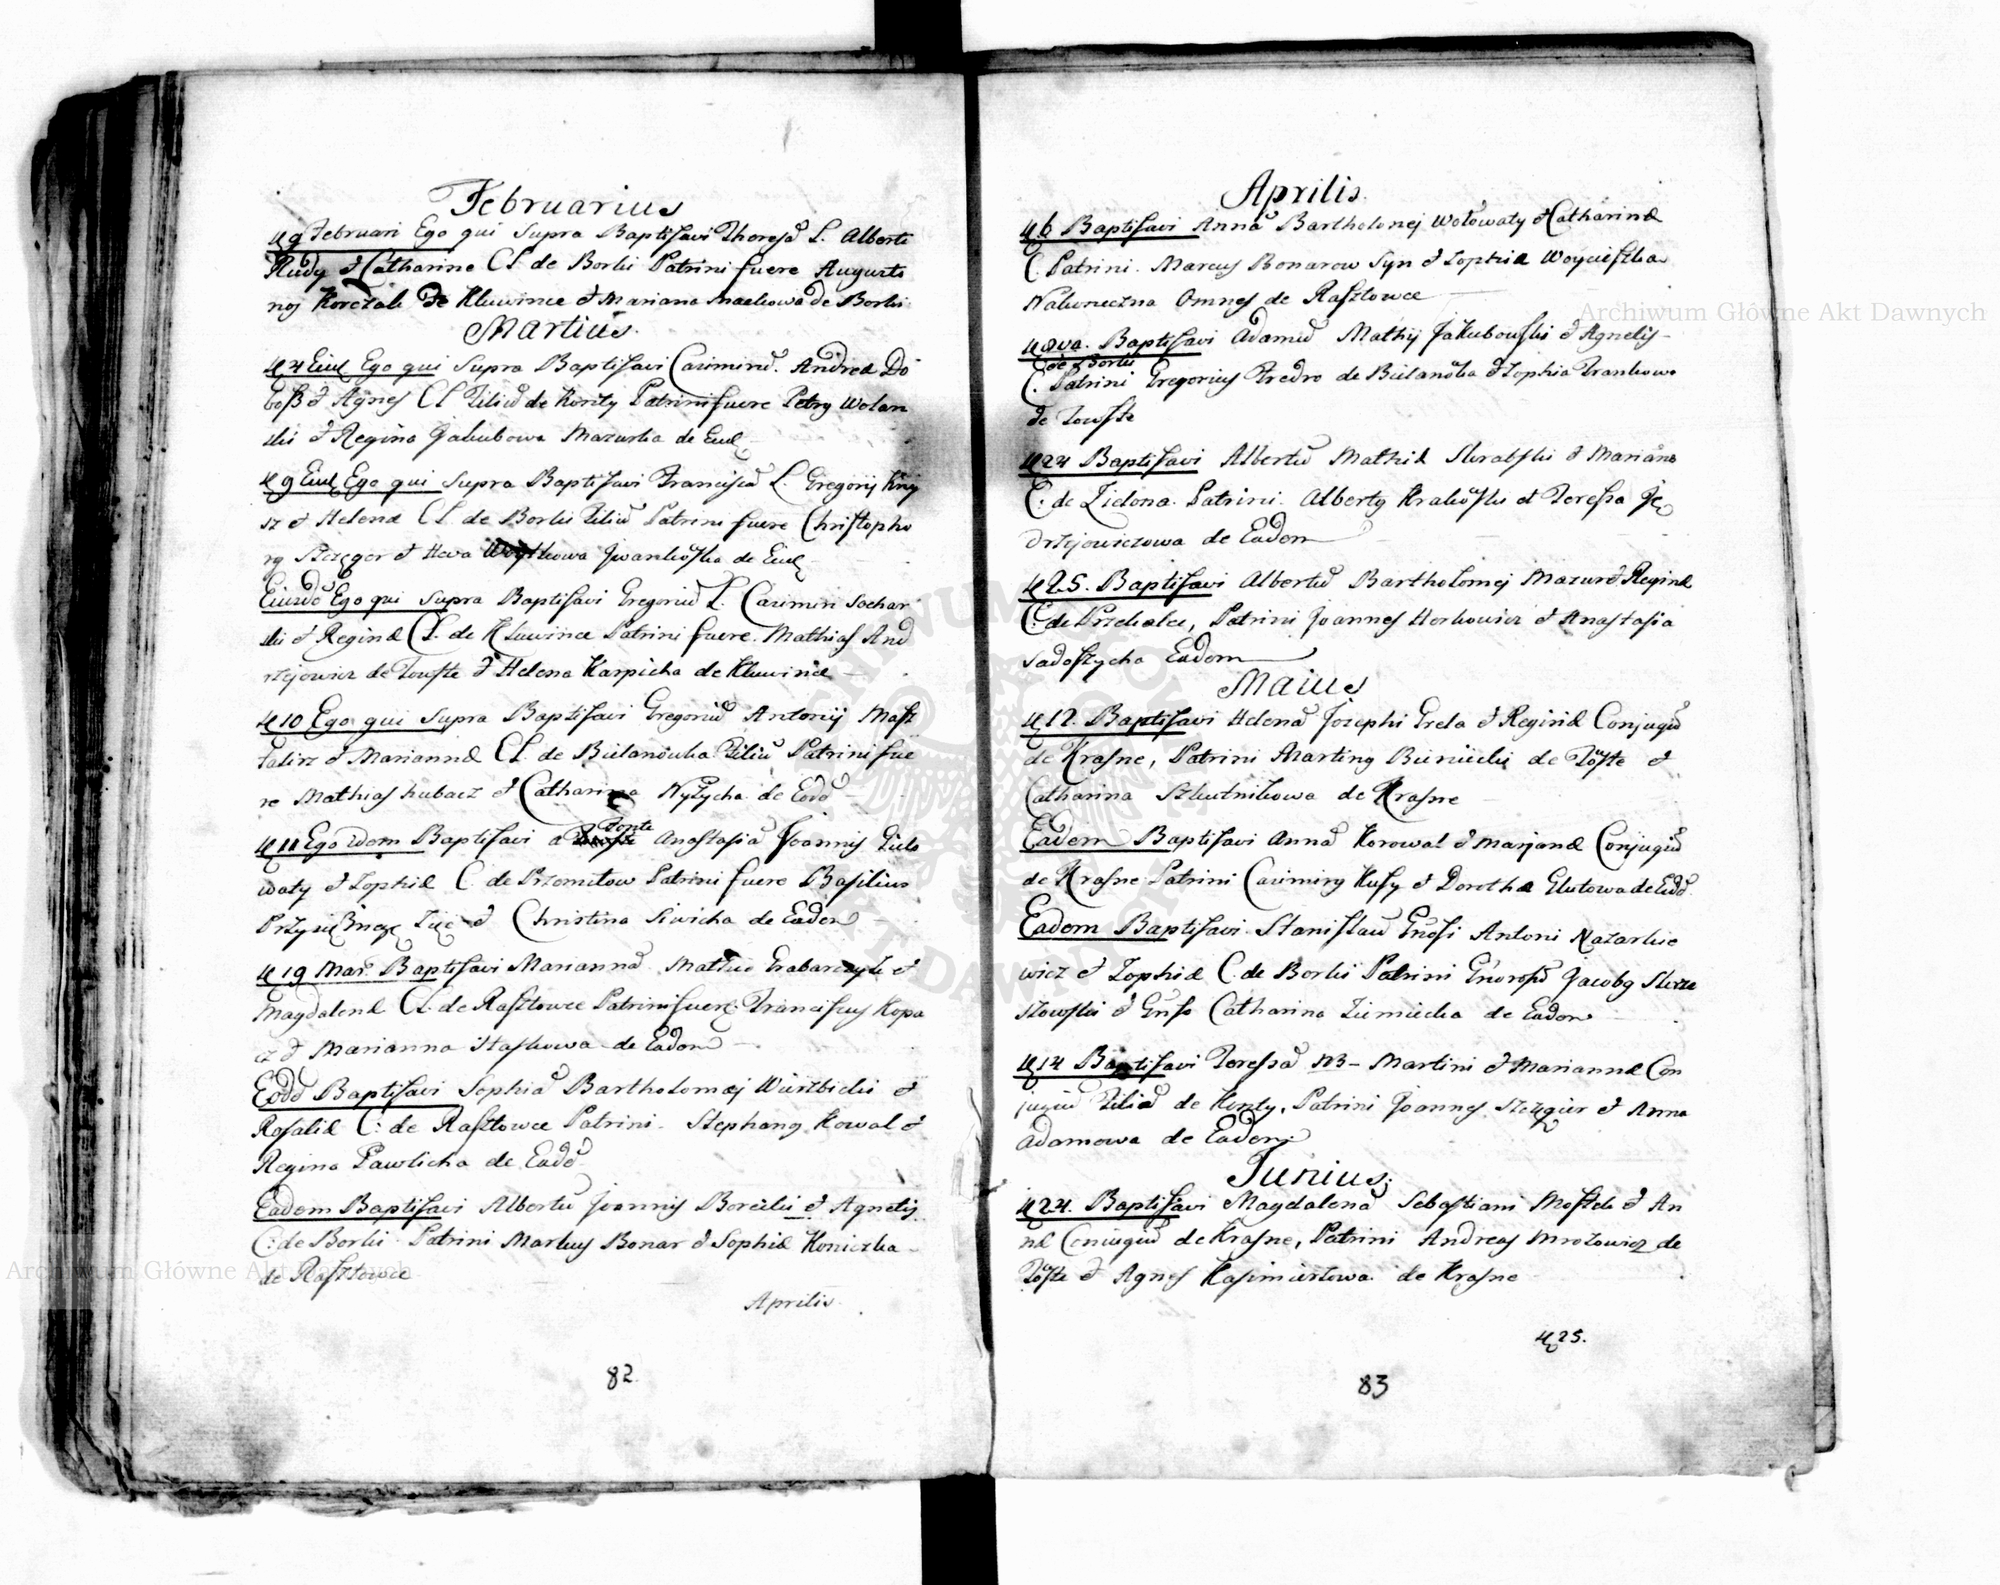 Februarius
9 Februari Ego qui Supra Baptisavi Theresã L. Alberti
Rudy & Catharine CL. de Borki Patrini fuere Augusti
noy Korczak de Kluwince & Mariana Mackowa de Borki
Martius.
4 Eius Ego qui Supra Baptisavi Casimirũ. Andreæ Do
boss & Agnes CL Filiũ de Konty Patrini fuere Petry Wolan
ski & Regina Jakubowa Mazurka de
9 Ego qui Supra Baptisavi Franciscũ L. Gregorij Krij
sz & Helenæ CL. de Borki Filiũ Patrini fuere Christopho
ry & Heva Woytkowa de
Ego qui Supra Baptisavi Gregoriũ L. Casimiri Sochar
ski & Reginæ CL. de Kluwince Patrini fuere. Mathias And
rzejowicz de Touste & Helena Karpicha de Kluwince
10 Ego qui Supra Baptisavi Gregoriũ Antonij Mast
talirz & Mariannæ CL. de Bielanowka Filiũ Patrini fue
re Mathias Kubacz & Catharina de Eodẽ
11 Ego idem Baptisavi a Fonte Anastasiã Joannis
waty & Zophiæ C. de Przemitow Patrini fuere Basilius
& Christina Siwicha de Eadem
19 Mar. Baptisavi Mariannã Grabarczyk &
Magdalenæ CL. de Rasztowce Patrini fuere: Franciscus Kopa
cz & Marianna Staskowa de Eadem
Eodẽ Baptisavi Sophiã Bartholomej Wierzbicki &
Rosaliæ C: de Rasztowce Patrini. Stephany Kowal &
Regina Pawlicha de Eadẽ
Eadem Baptisavi Albertũ Joannis Borecki & Agnetis
C: de Borki. Patrini Markus Bonar & Sophiæ Koniczka
de Rasztowce
Aprilis.
82.
Aprilis.
6 Baptisavi Annã Bartholomej Wołowaty & Catharinæ
C. Patrini. Marcus Bonarow Syn & Zophia Woyciszka
Nakoneczna Omnes de Rasztowce
8va. Baptisavi Adamũ Mathij Jakubowski & Agnetis
de Borki
C. Patrini Gregorius Fredro de Bielanowka & Zophia Frankowa
de Touste
24 Baptisavi Albertũ Mathiæ Skrabski & Marianæ
C: de Zielona. Patrini. Alberty Krakowski et Teressa Ję
drzejowiczowa de Eadem
25. Baptisavi Albertũ Bartholomej Mazur & Reginæ
C: de Przekalec, Patrini Joannes Horkowicz & Anastasia
Sadoszycha Eadem
Maius
12. Baptisavi Helenã Josephi Grela & Reginæ Conjugũ
de Krasne, Patrini Marting Bieniecki de Touste &
Catharina Szkutnikowa de Krasne
Eadem Baptisavi Annã Korowal & Marjanæ Conjugũ
de Krasne Patrini Casimirg Kusy & Dorothæ Glutowa de Eadẽ.
Eadem Baptisavi. Stanislaũ Gnosi Antoni Nazarkie
wicz & Zophiæ C. de Borki Patrini Gnorosũ Jacobg Skrze
szowski & Gnso Catharina Ziemiecka de Eadem
14 Baptisavi Teressã NB – Martini & Mariannæ Con
jugiũ Filiã de Konty, Patrini Joannes & Anna
Adamowa de Eadem
Junius.
24. Baptisavi Magdalenã Sebastiani & An
næ Conjugiũ de Krasne, Patrini Andreas Mrozowicz de
Touste & Agnes Kasimierzowa de Krasne
25.
83
Archiwum Główne Akt Dawnych
Archiwum Główne Akt Dawnych